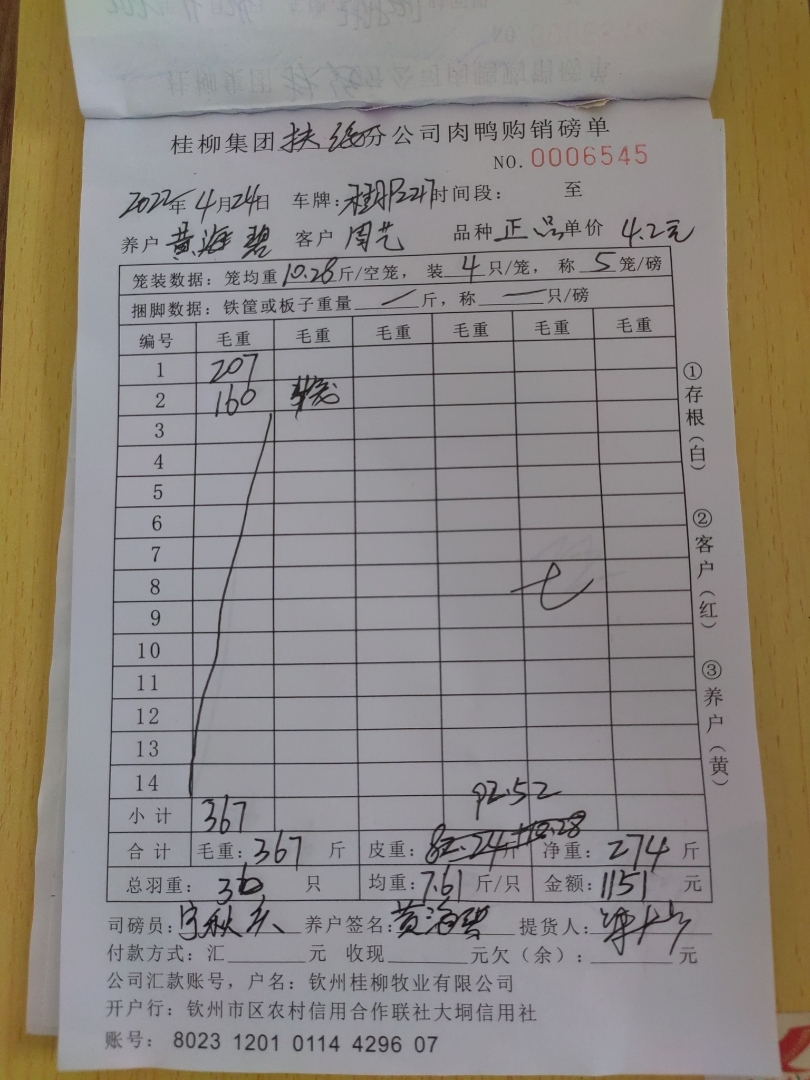 桂柳集团扶绥分公司肉鸭购销磅单
NO.0006545
2022年4月24日 车牌: 时间段: 至
养户 黄海碧 客户 周艺 品种 正品 单价 4.2元
笼装数据:笼均重10.28斤/空笼,装4只/笼,称5笼/磅
捆脚数据:铁筐或板子重量 — 斤,称 — 只/磅
编号 毛重 毛重 毛重 毛重 毛重 毛重
1 207
2 160
3
4
5
6
7
8 七
9
10
11
12
13
14
92.52
小计 367
合计 毛重:367 斤 皮重:82.24斤+10.28 净重:274 斤
总羽重:36 只 均重:7.61斤/只 金额:1151 元
司磅员: 养户签名:黄海碧 提货人:
付款方式:汇 元 收现 元欠(余): 元
公司汇款账号,户名:钦州桂柳牧业有限公司
开户行:钦州市区农村信用合作联社大垌信用社
账号: 8023 1201 0114 4296 07
①存根(白)
②客户(红)
③养户(黄)